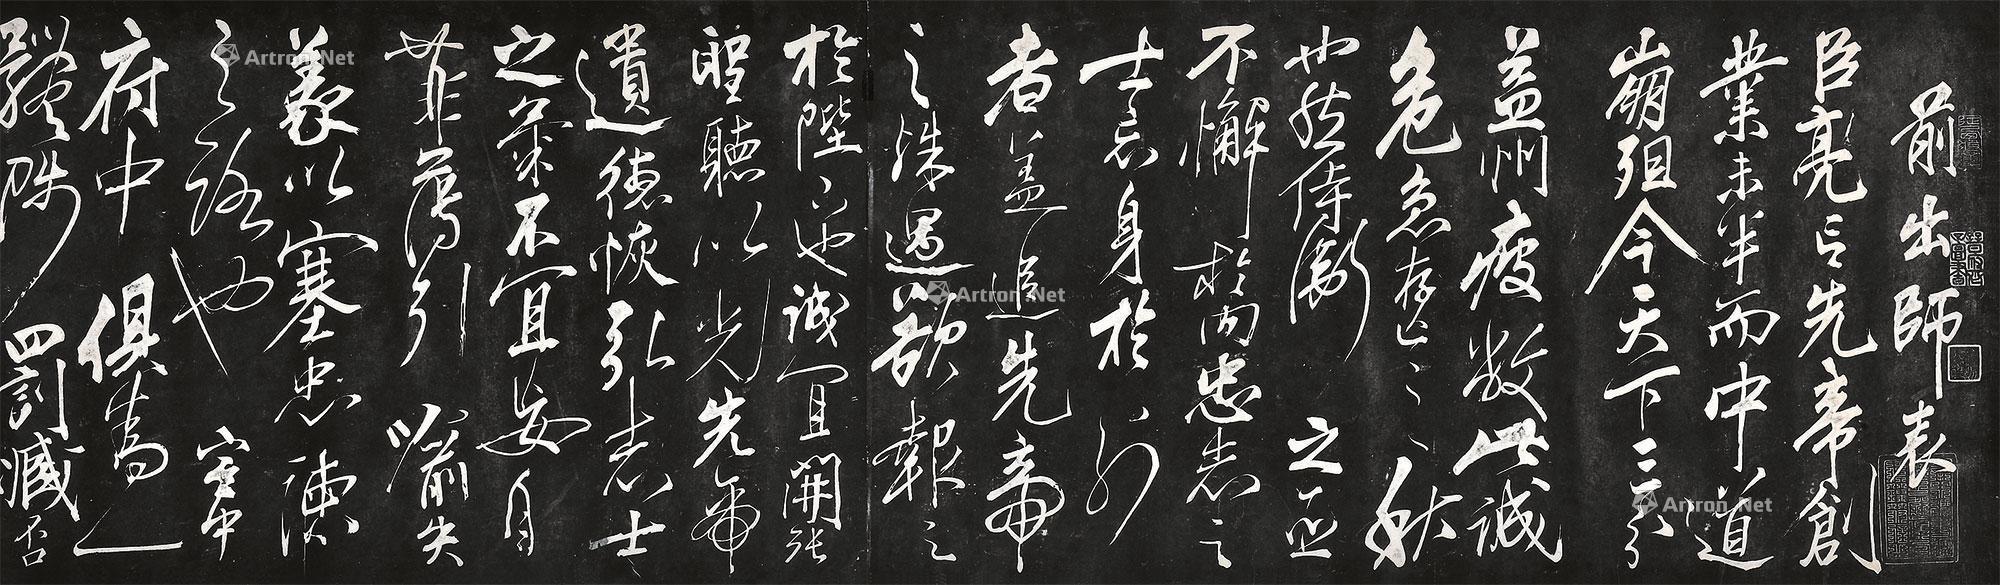 前出師表
臣亮言先帝創
業未半而中道
崩殂今天下三分
益州疲敝此誠
危急存亡之秋
也然侍衛之臣
不懈於內忠志之
士忘身於外
者蓋追先帝
之殊遇欲報之
於陛下也誠宜開張
聖聽以光先帝
遺德恢弘志士
之氣不宜妄自
菲薄引喻失
義以塞忠諫
之路也宮中
府中俱為一
體陟罰臧否
Artron.Net
Artron.Net
Artron.Net
Artron.Net